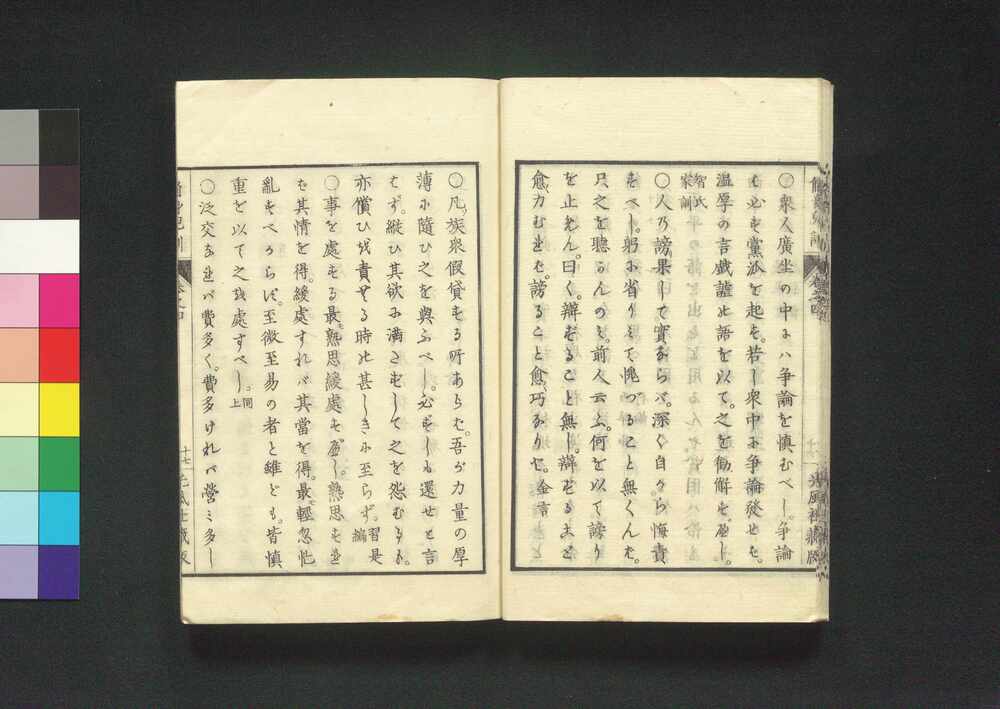 ○衆人廣坐の中にハ爭論を愼むべし。爭論
も必ず黨派を起す。若し衆中に爭論發せば。
温厚の言戯謔の語を以て。之を勸解すべし。
智氏
家訓
○人の謗果して實ならバ。深く自から悔責
すべし。躬に省りみて愧づること無くんば。
只之を聽かんのミ。前人云ふ。何を以て謗り
を止めん。曰く。辯ずること無し。辯ずる土と
愈〻力むれば。謗ること愈〻巧なりと。金言
○凡ソ族衆假貸する所あらば。吾が力量の厚
薄に隨ひ之を與ふべし。必ずしも還せと言
はず。縱ひ其欲に滿さずして之を怨むるも。
亦償ひを責むる時の甚しきに至らず。習是
編
○事を處する最〻熟思緩處すべし。熟思すれば
其情を得。緩處すれバ其當を得。最〻輕忽忙
亂すべからず。至微至易の者と雖ども。皆愼
重を以て之を處すべし。同
上
○泛交なれバ費多く。費多ければ營ミ多し
卷之四
十七